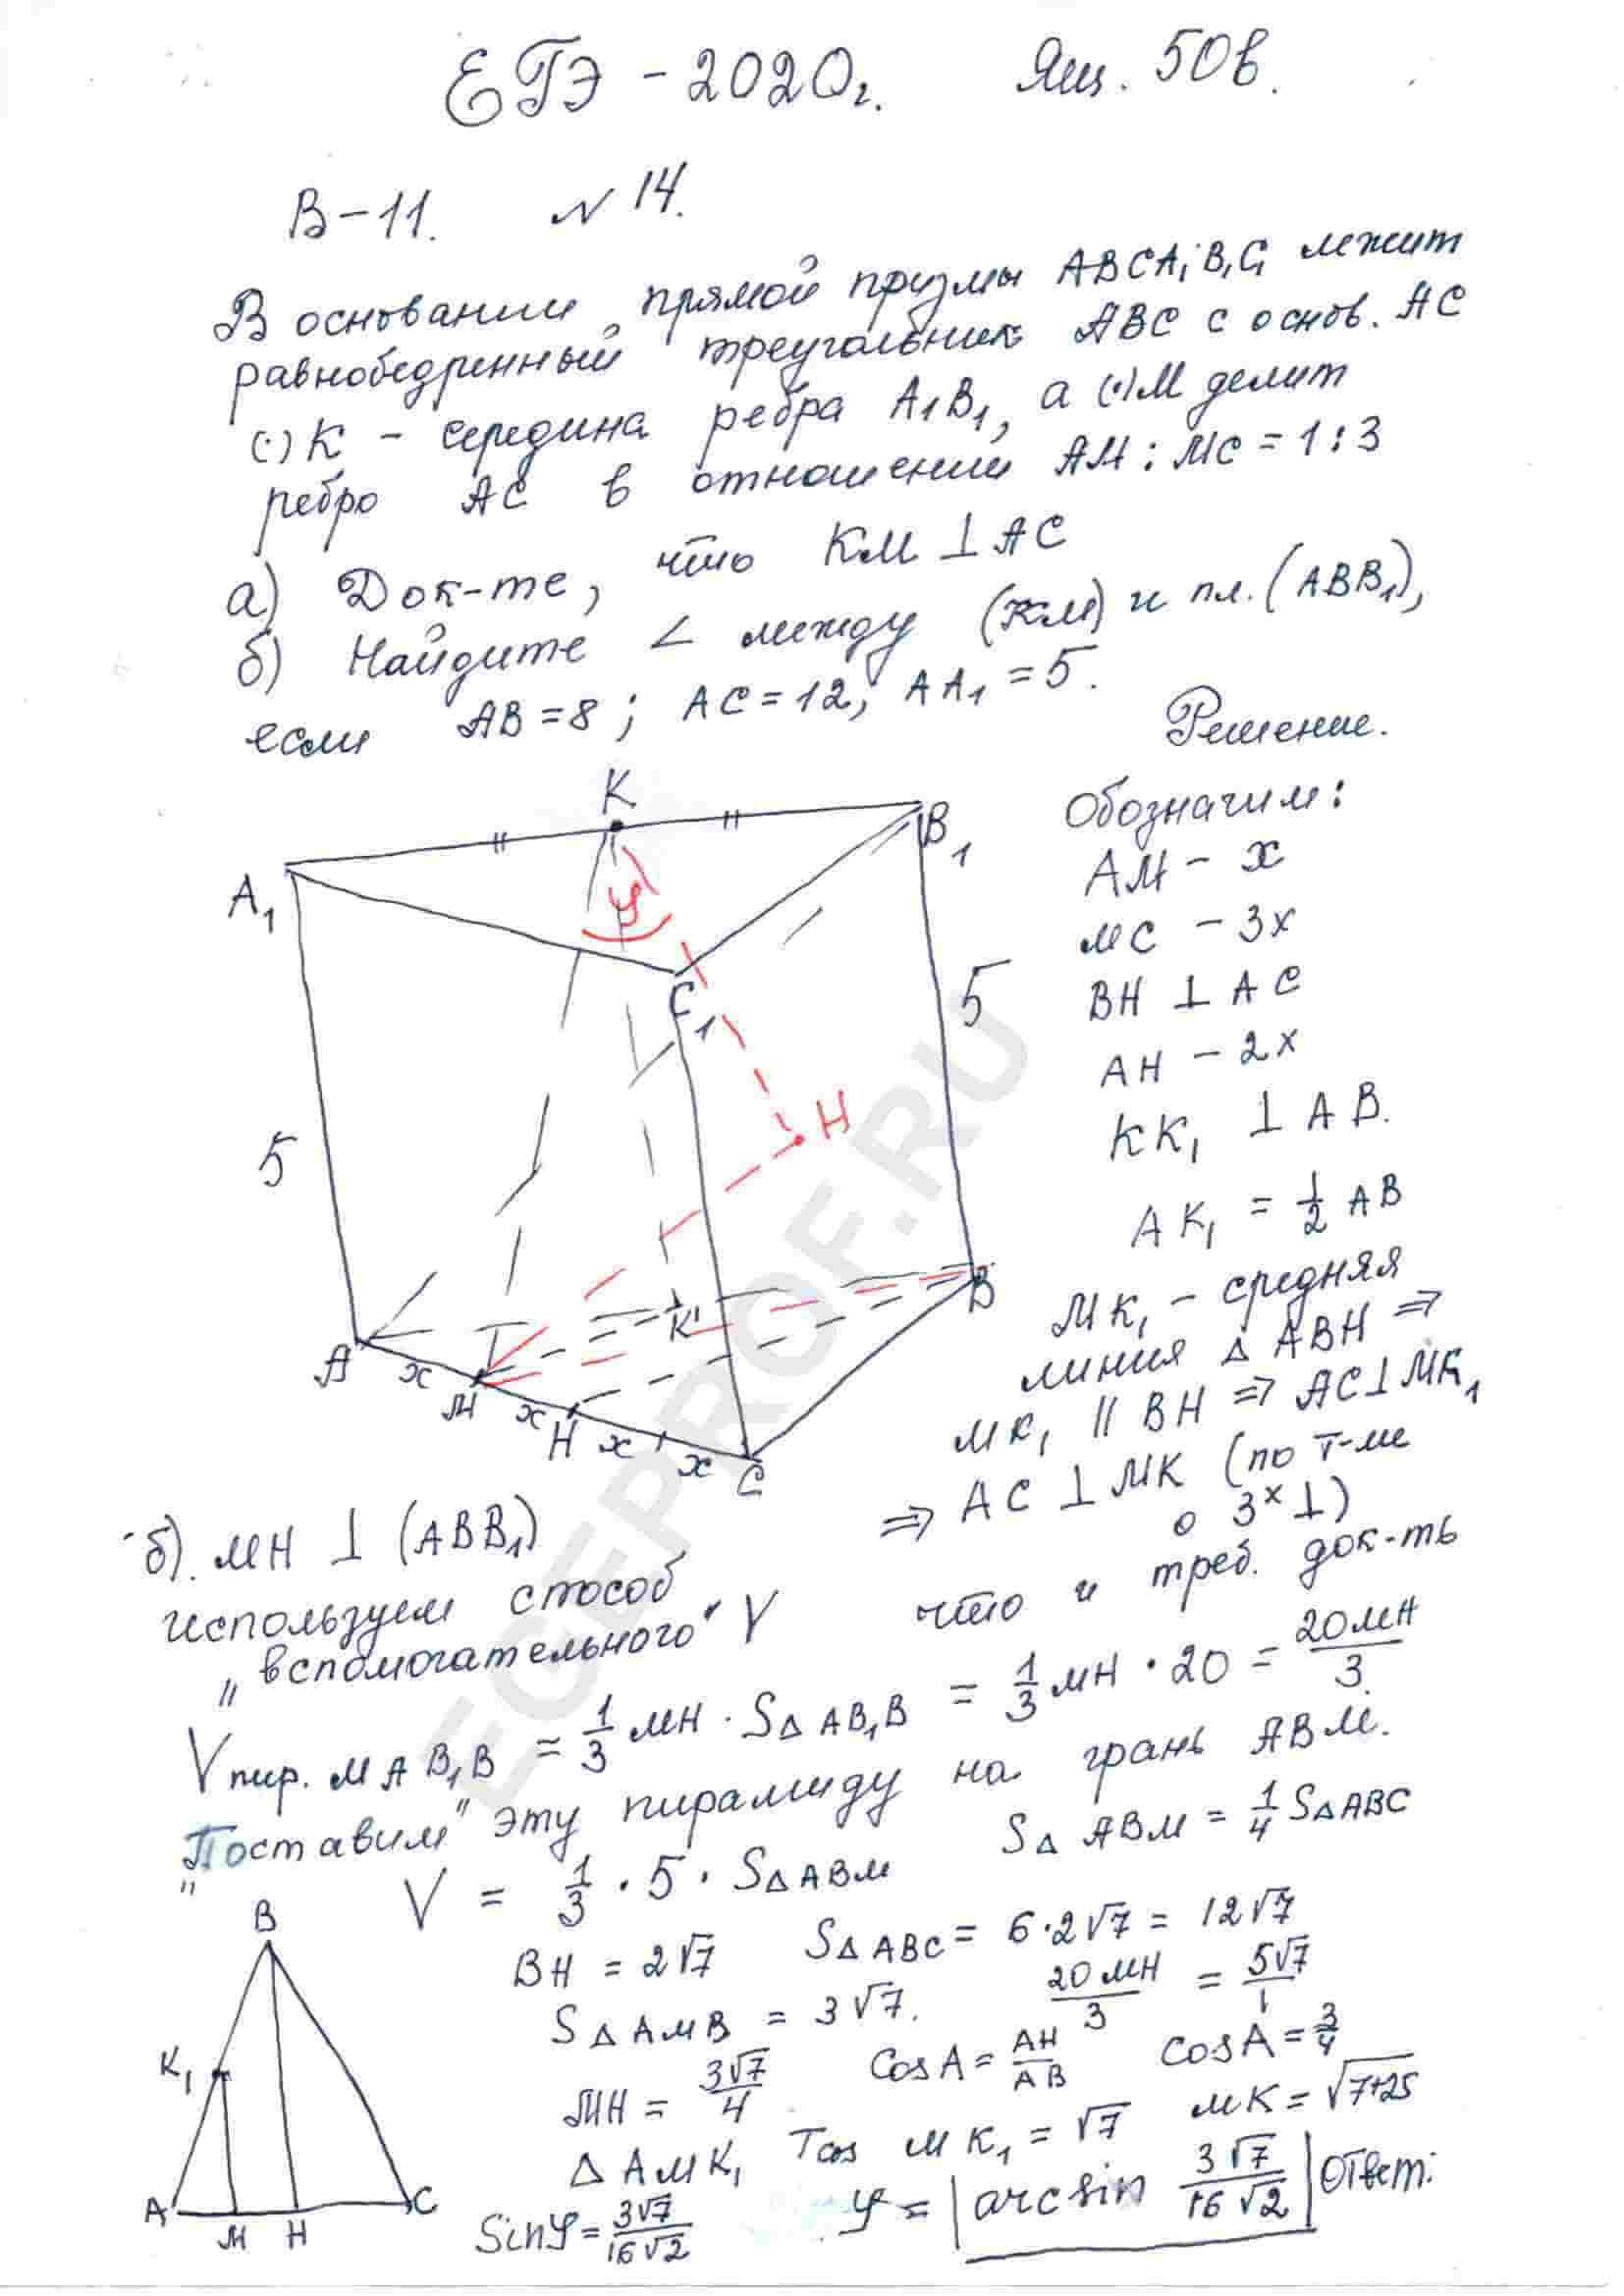 ЕГЭ - 2020г. Ящ. 50в.
В-11. N 14.
В основании прямой призмы ABCA₁B₁C₁ лежит
равнобедренный треугольник ABC с основ. AC
(·) K - середина ребра A₁B₁, а (·) M делит
ребро AC в отношении AM : MC = 1 : 3
а) Док-те, что KM ⊥ AC
б) Найдите ∠ между (KM) и пл. (ABB₁),
если AB = 8 ; AC = 12, AA₁ = 5.
Решение.
Обозначим:
AM - x
MC - 3x
BH ⊥ AC
AH - 2x
KK₁ ⊥ AB.
AK₁ = 1/2 AB
MK₁ - средняя
линия Δ ABH ⇒
MK₁ || BH ⇒ AC ⊥ MK₁
⇒ AC ⊥ MK (по т-ме
о 3ˣ ⊥)
что и треб. док-ть
K
A₁
B₁
φ
C₁
5
5
H
K'
B
A
x
M
x
H
x
x
C
б). MH ⊥ (ABB₁)
используем способ
"вспомогательного" V
V пир. MAB₁B = 1/3 MH · SΔ AB₁B = 1/3 MH · 20 = 20MH/3.
"Поставим" эту пирамиду на грань ABM.
V = 1/3 · 5 · SΔABM
SΔ ABM = 1/4 SΔABC
BH = 2√7
SΔABC = 6·2√7 = 12√7
SΔ AMB = 3√7.
20MH/3 = 5√7/1
MH = 3√7/4
CosA = AH/AB
CosA = 3/4
Δ AMK₁ Tas MK₁ = √7
MK = √7+25
Sinφ = 3√7/16√2
φ = arcsin 3√7/16√2
Ответ:
B
K₁
A
M
H
C
EGEPROF.RU